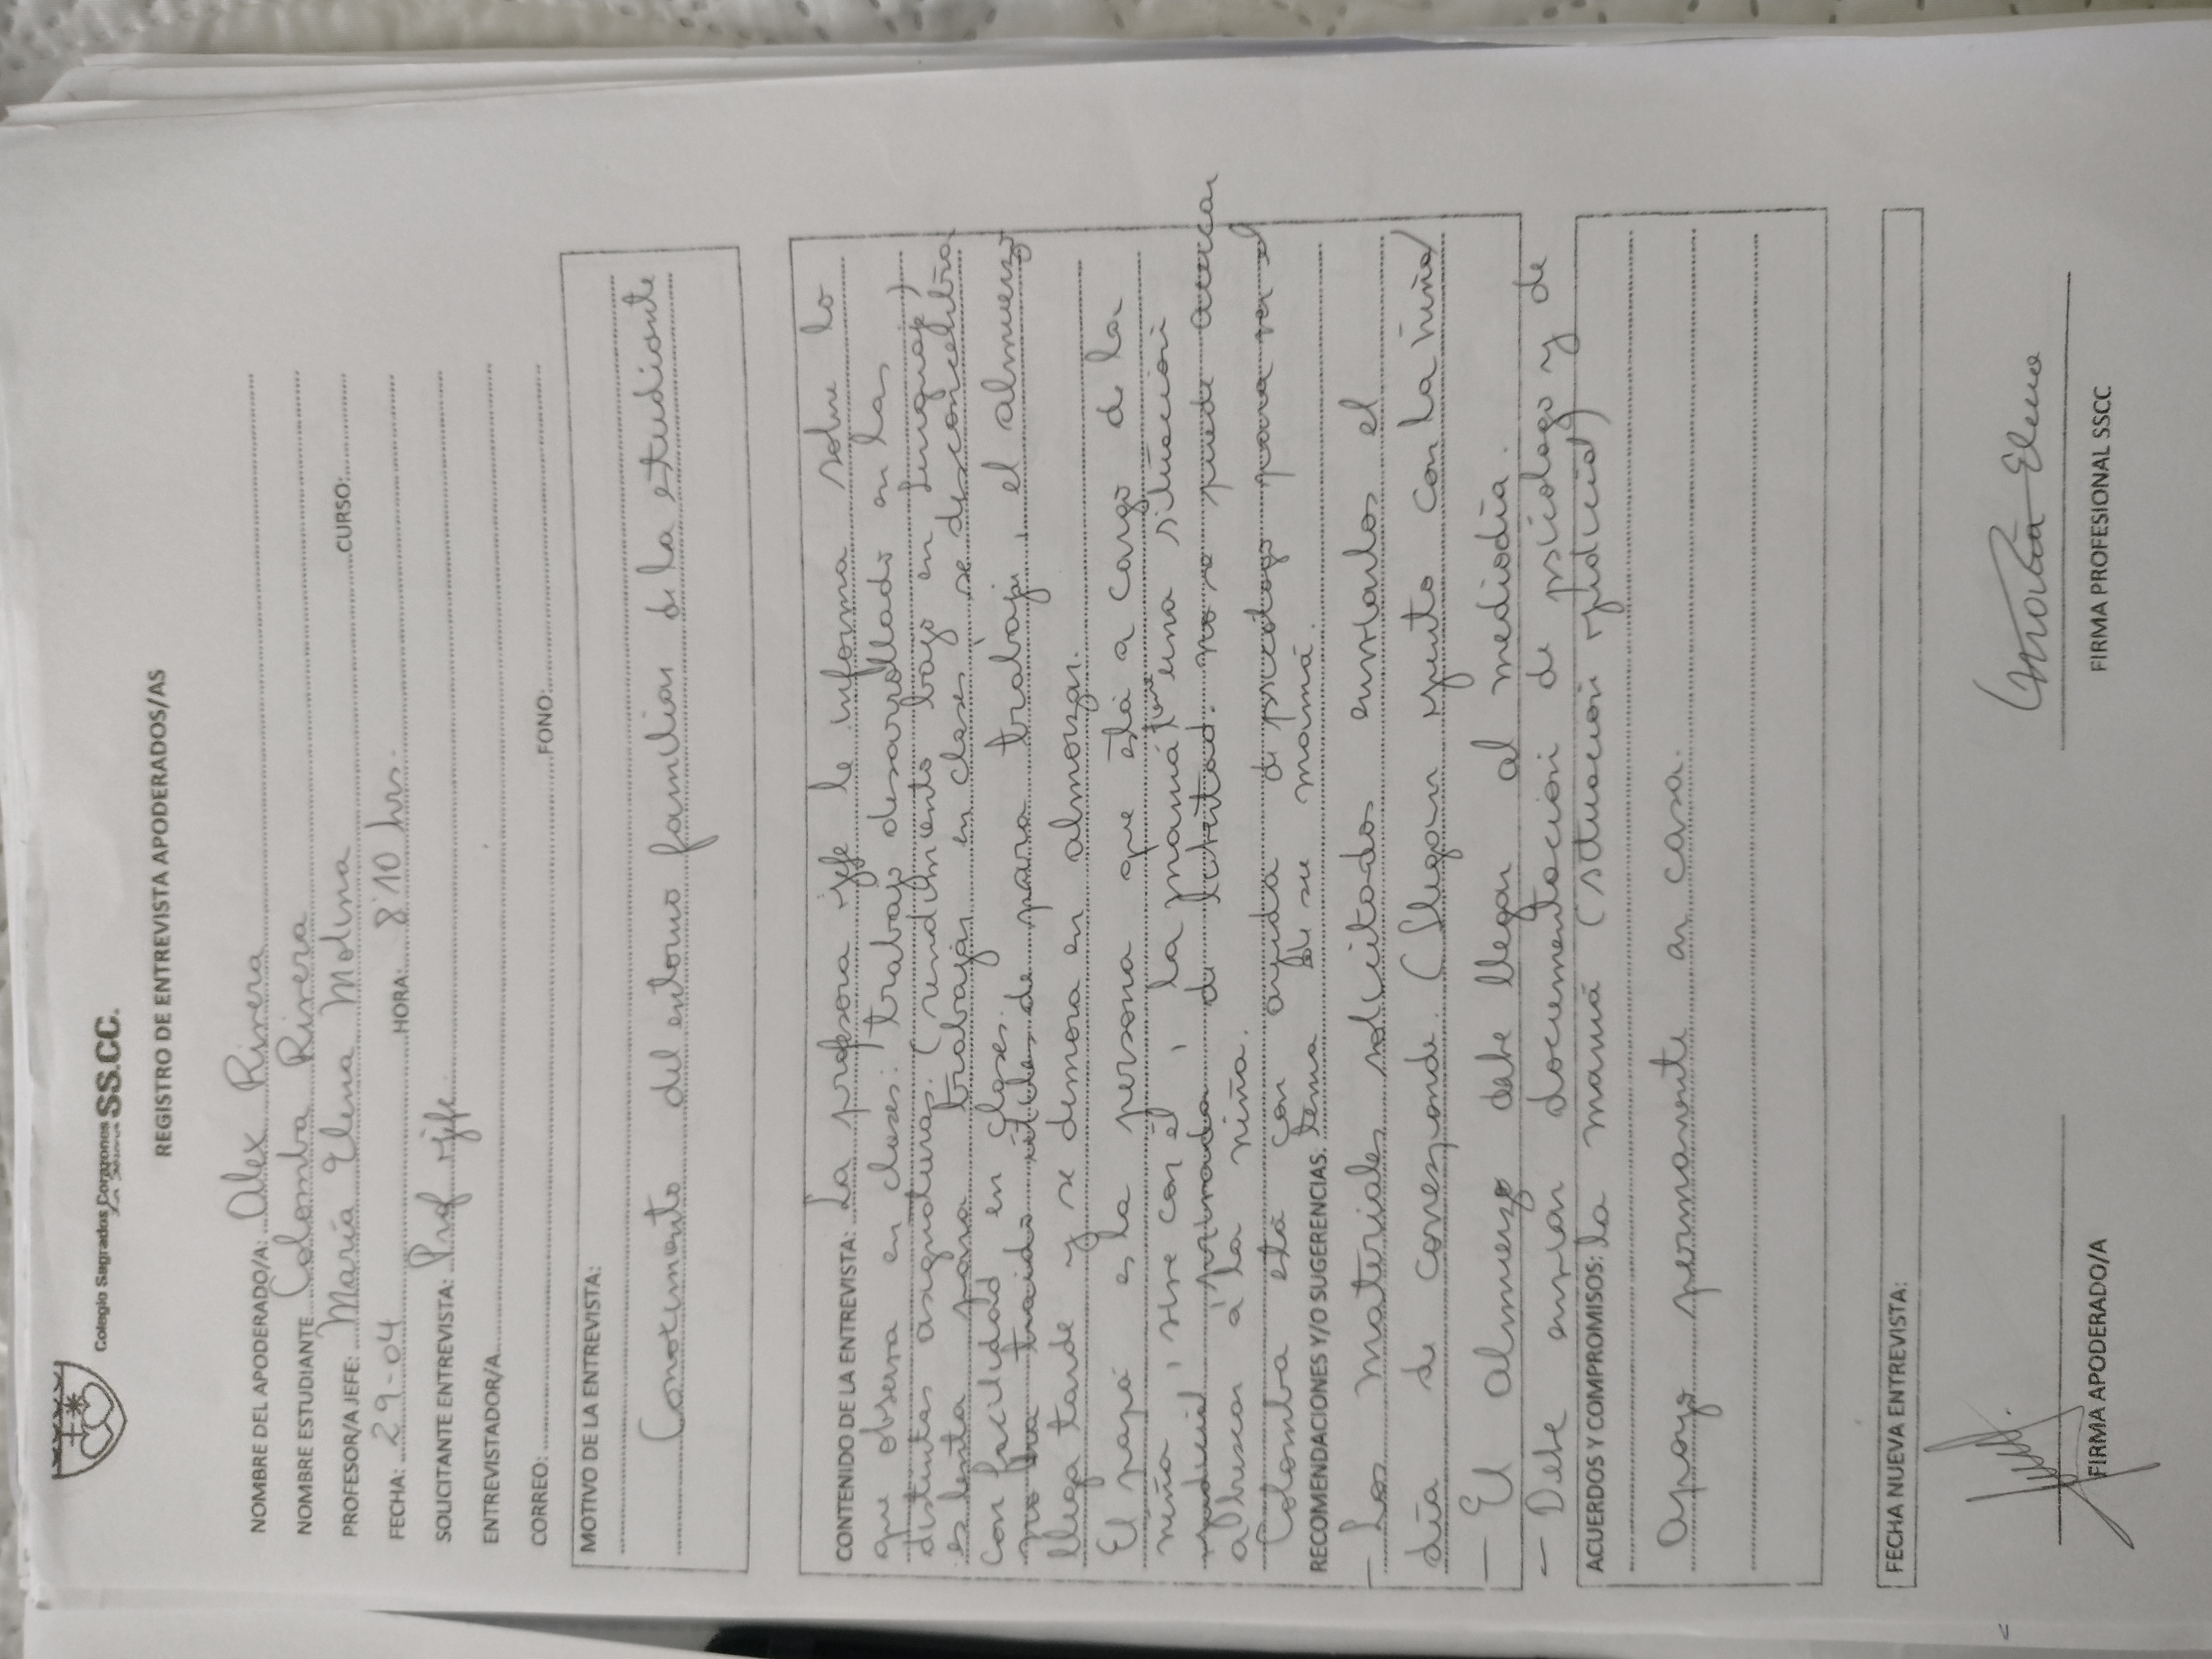 Colegio Sagrados Corazones SS.CC.
REGISTRO DE ENTREVISTA APODERADOS/AS
NOMBRE DEL APODERADO/A: Alex Rivera
NOMBRE ESTUDIANTE Colomba Rivera
PROFESOR/A JEFE: María Elena Molina CURSO:
FECHA: 29-04 HORA: 8:10 hrs.
SOLICITANTE ENTREVISTA: Prof jefe.
ENTREVISTADOR/A
CORREO: FONO:
MOTIVO DE LA ENTREVISTA:
Conocimiento del entorno familiar de la estudiante
CONTENIDO DE LA ENTREVISTA: La profesora jefe le informa sobre lo
que observa en clases: trabajo desarrollado en las
distintas asignaturas. (rendimiento bajo en lenguaje)
Es lenta para trabajar en clases se desconcentra
con facilidad en clases.
no ha traído útiles de para trabajar, el almuerzo
llega tarde y se demora en almorzar.
El papá es la persona que está a cargo de la
niña, vive con él, la mamá tiene una situación
judicial, privada de libertad. no se puede acercar
a la niña.
Colomba está con ayuda de psicólogo para ver el
RECOMENDACIONES Y/O SUGERENCIAS. tema de su mamá.
- Los materiales solicitados enviarlos el
día de corresponde. (llegar junto con la niña)
- El almuerzo debe llegar al mediodía.
- Debe enviar documentación de psicólogo y de
ACUERDOS Y COMPROMISOS: la mamá (situación judicial)
Apoyo permanente en casa.
FECHA NUEVA ENTREVISTA:
FIRMA APODERADO/A FIRMA PROFESIONAL SSCC